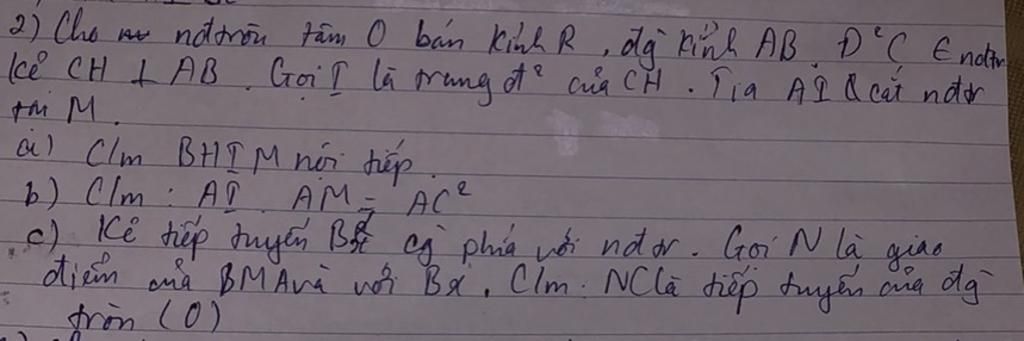 2) Cho nđtròn tâm O bán kính R, đg kính AB. Đ²C ∈ nđtr
Kẻ CH ⊥ AB. Gọi I là trung đ² của CH. Tia AI cắt nđtr
tại M.
a) C/m BHIM nội tiếp.
b) C/m: AI. AM = AC²
c) Kẻ tiếp tuyến Bx cg phía với nđtr. Gọi N là giao
điểm của BMAvà với Bx. C/m: NClà tiếp tuyến của đg
tròn (O)